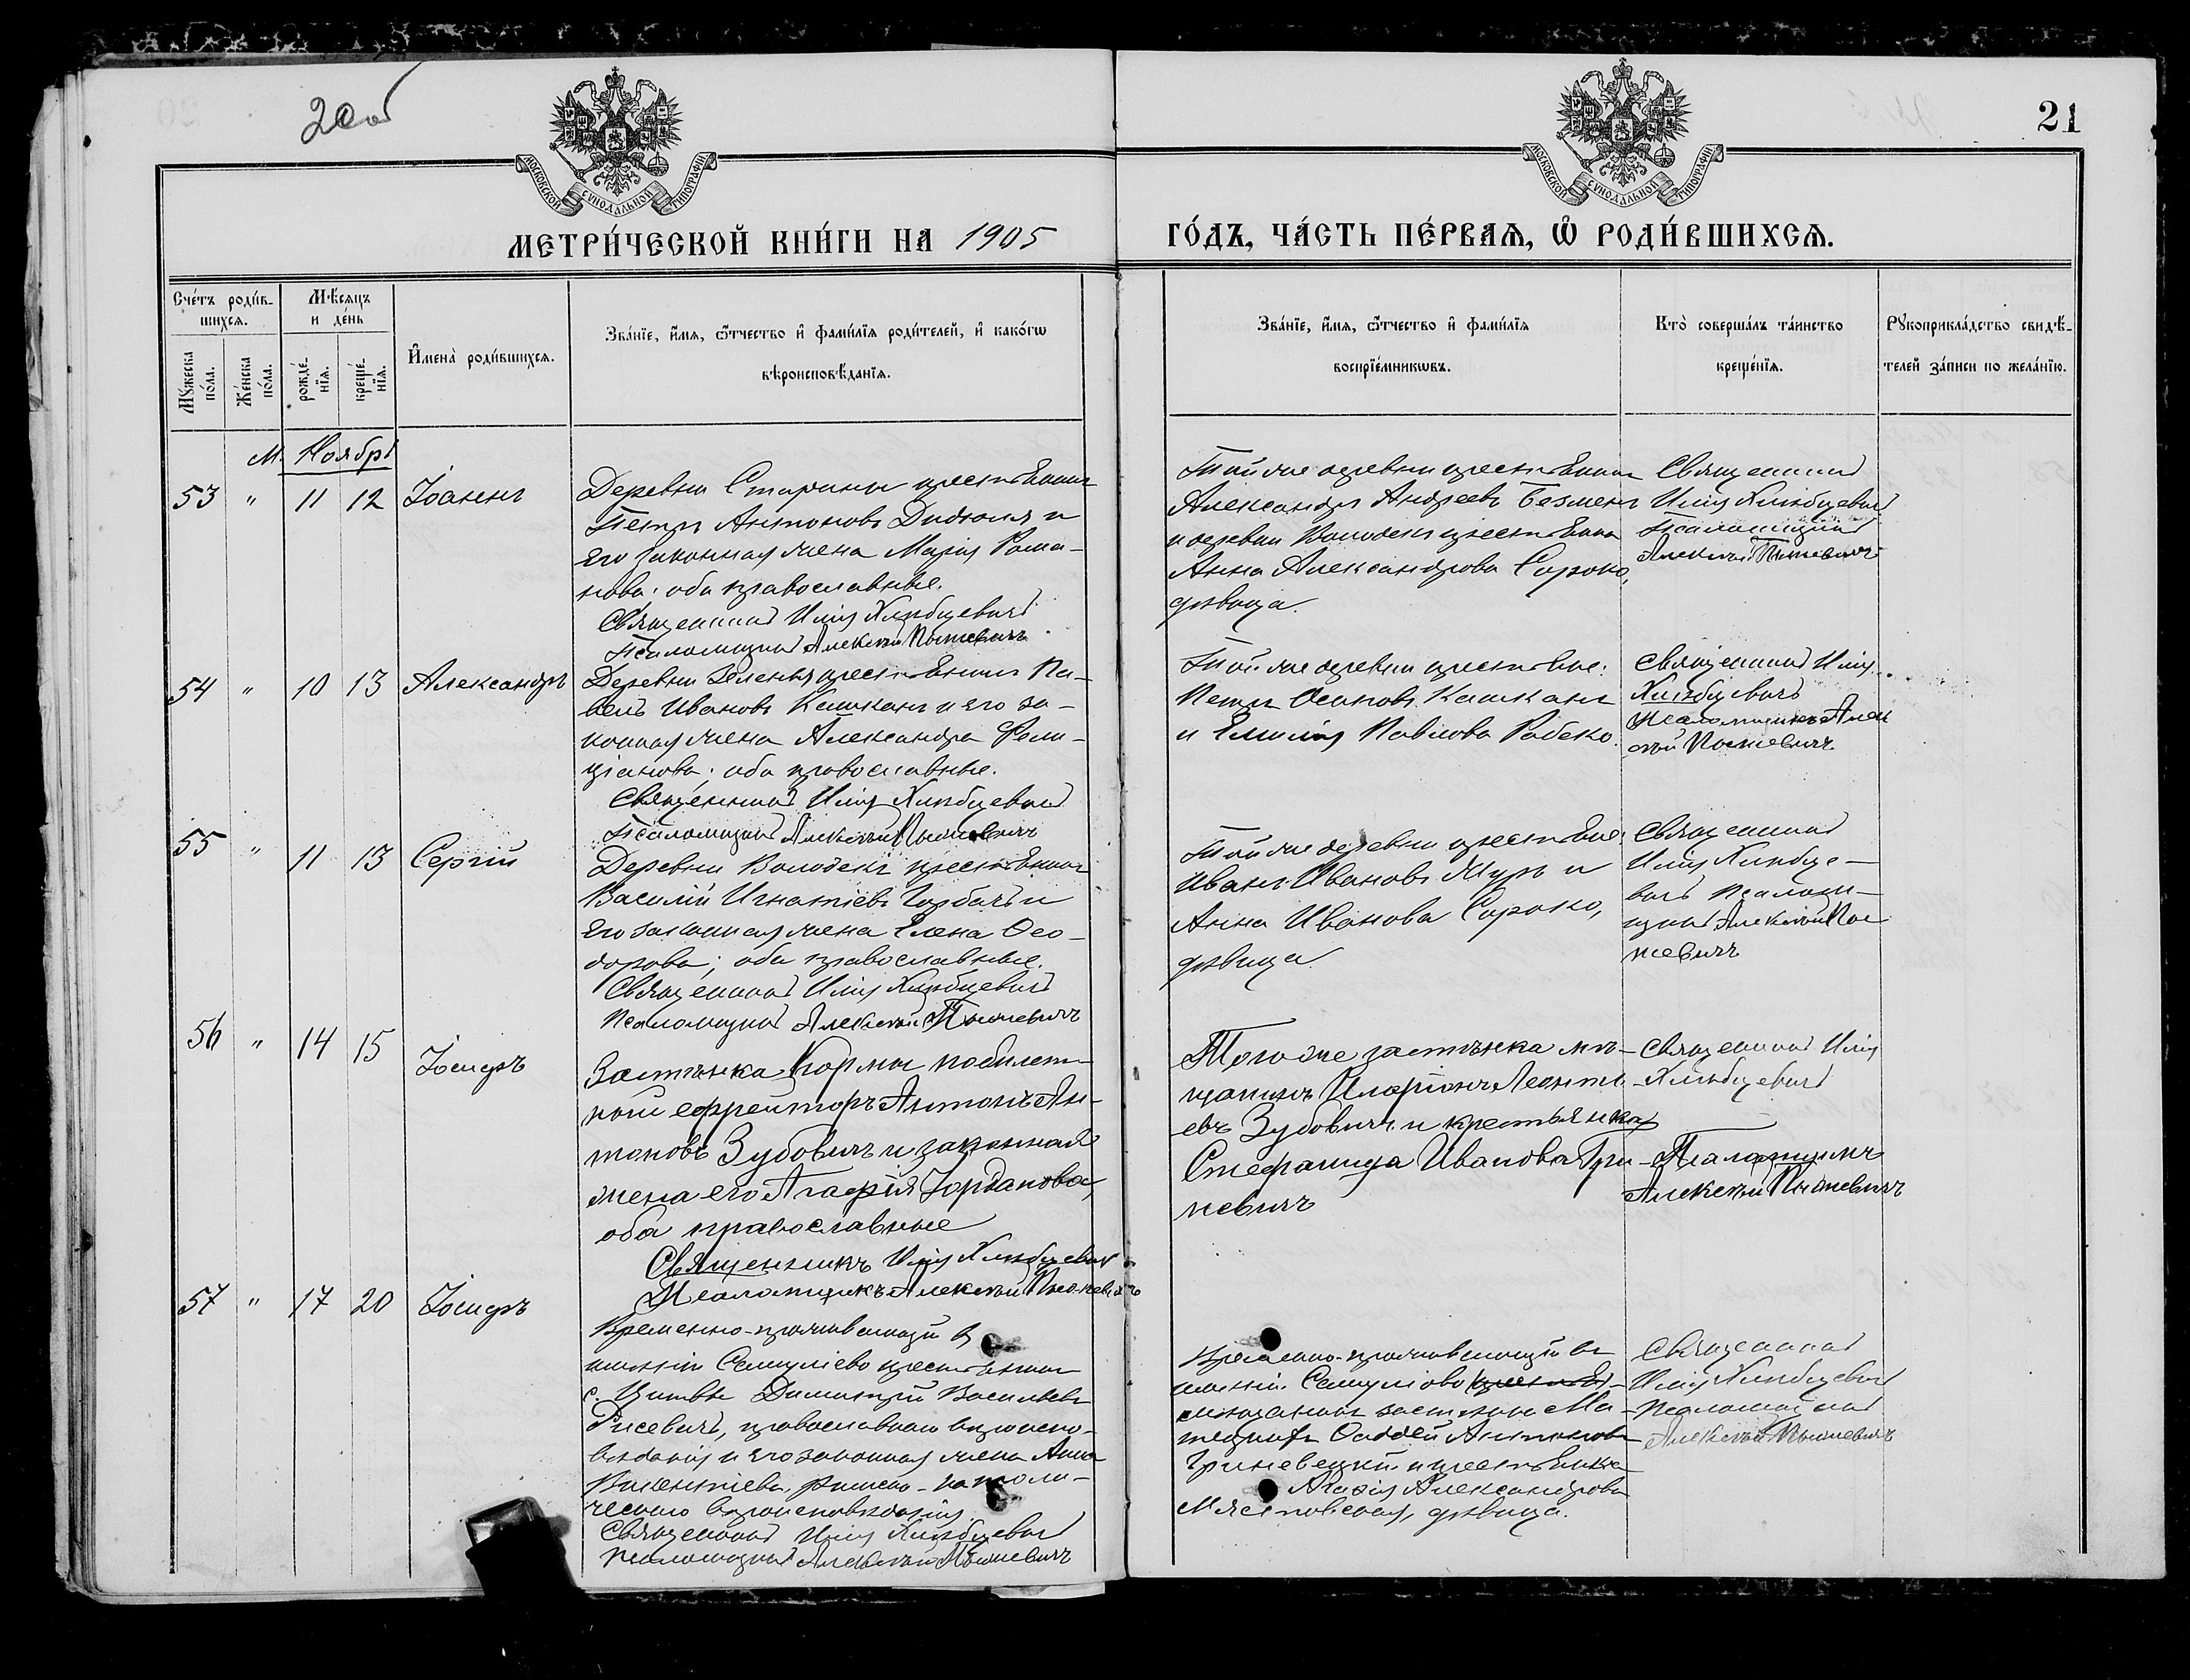 20 об
21
МОСКОВСКОЙ СУНОДАЛЬНОЙ ТИПОГРАФІИ
МОСКОВСКОЙ СУНОДАЛЬНОЙ ТИПОГРАФІИ
МЕТРИ́ЧЕСКОЙ КНИ́ГИ НА 1905
ГО́ДЪ, ЧА́СТЬ ПЕ́РВАѦ, Ѡ РОДИ́ВШИХСѦ.
Сче́тъ роди́в-
шихся.
Мѣсяцъ
и де́нь
Мꙋ́жеска
по́ла.
Же́нска
по́ла.
рожде́-
нїя.
креще́-
нїя.
И҆мена̀ роди́вшихся.
Зва́нїе, и҆́мя, ѻ҆́тчество и҆ фами́лїя роди́телей, и҆ како́гѡ
вѣроисповѣ́данїя.
Зва́нїе, и҆́мя, ѻ҆́тчество и҆ фами́лїя
воспрїе́мникѡвъ.
Кто̀ соверша́лъ та́инство
креще́нїя.
Рꙋкоприкла́дство свидѣ́-
телей за́писи по жела́нїю.
М. Ноябрь
53 " 11 12 Іоаннъ
Деревни Старины крестьянинъ
Петръ Антоновъ Дидюля и
его законная жена Марія Рома-
нова: оба православные.
Священникъ Илія Хлѣбцевичъ
Псаломщикъ Алексѣй
Той же деревни крестьянинъ
Александръ Андреевъ Безменъ
и деревни Володьки крестьянка
Анна Александрова Сороко,
дѣвица.
Священникъ
Илія Хлѣбцевичъ
Псаломщикъ
Алексѣй
54 " 10 13 Александръ
Деревни крестьянинъ Па-
велъ Ивановъ Кашканъ и его за-
конная жена Александра Фели-
ціанова; оба православные.
Священникъ Илія Хлѣбцевичъ
Псаломщикъ Алексѣй
Той же деревни крестьяне:
Петръ Осиповъ Кашканъ
и Емилія Павлова Рабеко.
Священникъ Илія
Хлѣбцевичъ
Псаломщикъ Алек
сѣй
55 " 11 13 Сергій
Деревни Володьки крестьянинъ
Василій Игнатіевъ Горбачъ и
его законная жена Елена Ѳео-
дорова; оба православные.
Священникъ Илія Хлѣбцевичъ
Псаломщикъ Алексѣй
Той же деревни крестьяне:
Иванъ Ивановъ Журъ и
Анна Иванова Сороко,
дѣвица.
Священникъ
Илія Хлѣбце-
вичъ Псалом-
щикъ Алексѣй
56 " 14 15 Іосифъ
Застѣнка Кормы побилет-
ный ефрейторъ Антонъ Ан-
тоновъ Зубовичъ и законная
жена его Агафія Іорданова,
оба православные
Священникъ Илія Хлѣбцевичъ
Псаломщикъ Алексѣй
Того же застѣнка мѣ-
щанинъ Иларіонъ Леонть-
евъ Зубовичъ и крестьянка
Стефанида Иванова Гри-
невичъ
Священникъ Илія
Хлѣбцевичъ
Псаломщикъ
Алексѣй
57 " 17 20 Іосифъ
Временно-проживающій въ
имѣніи Самуліево крестьянинъ
с. Цитвы Димитрій Васильевъ
Рисевичъ, православнаго вѣроиспо-
вѣданія и его законная жена Анна
Викентіева, римско-католи-
ческаго вѣроисповѣданія.
Священникъ Илія Хлѣбцевичъ
Псаломщикъ Алексѣй
Временно-проживающій въ
имѣніи Самуліово
мѣщанинъ
Ѳаддей Антоновъ
Гриневецкій и крестьянка
Агафія Александрова
дѣвица.
Священникъ
Илія Хлѣбцевичъ
Псаломщикъ
Алексѣй